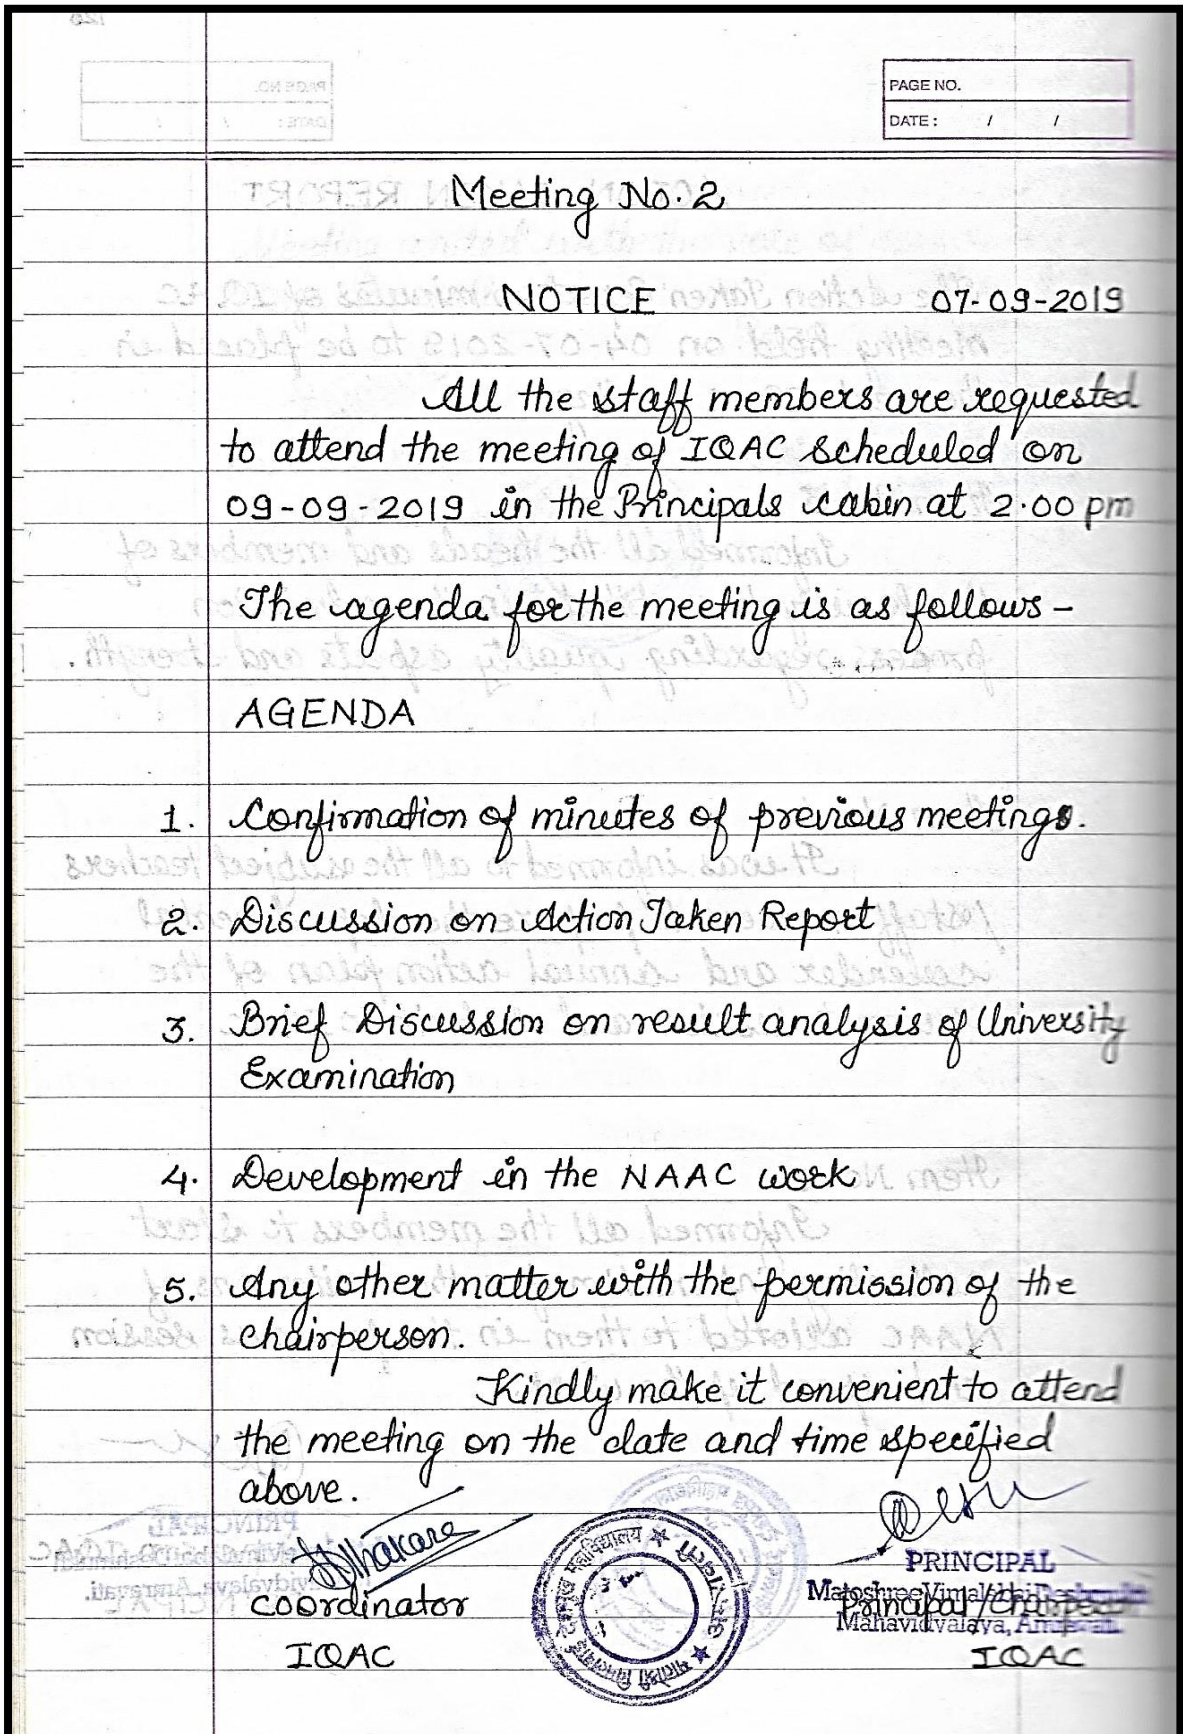 PAGE NO.
DATE : / /
Meeting No. 2
NOTICE 07-09-2019
All the staff members are requested
to attend the meeting of IQAC scheduled on
09-09-2019 in the Principals cabin at 2.00 pm
The agenda for the meeting is as follows -
AGENDA
1. Confirmation of minutes of previous meetings.
2. Discussion on Action Taken Report
3. Brief Discussion on result analysis of University
Examination
4. Development in the NAAC work
5. Any other matter with the permission of the
chairperson.
Kindly make it convenient to attend
the meeting on the date and time specified
above.
PRINCIPAL
Matoshree Vimalabai
Mahavidyalaya, Amravati
Coordinator Principal /
IQAC IQAC
महाविद्यालय